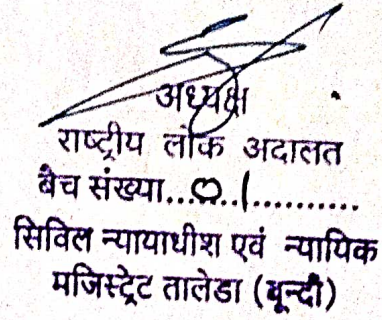 अध्यक्ष
राष्ट्रीय लोक अदालत
बैच संख्या...01...........
सिविल न्यायाधीश एवं न्यायिक
मजिस्ट्रेट तालेडा (बून्दी)